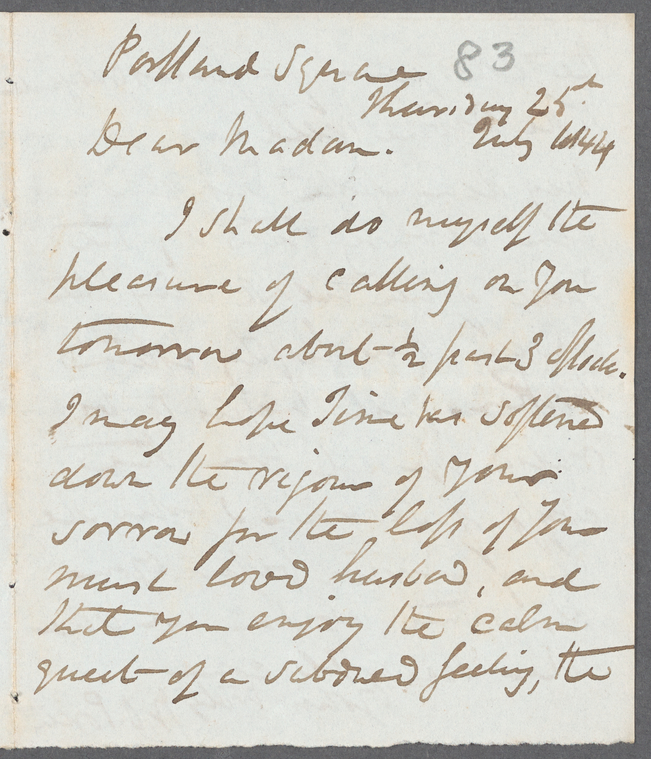 Portland Square
83
Thursday 25th
July 1844
Dear Madam.
I shall do myself the
pleasure of calling on you
tomorrow about ½ past 3 oflock.
I may hope Time has softened
down the rigour of your
sorrow for the loss of your
much loved husband, and
that you enjoy the calm
quiet of a subdued feeling, the